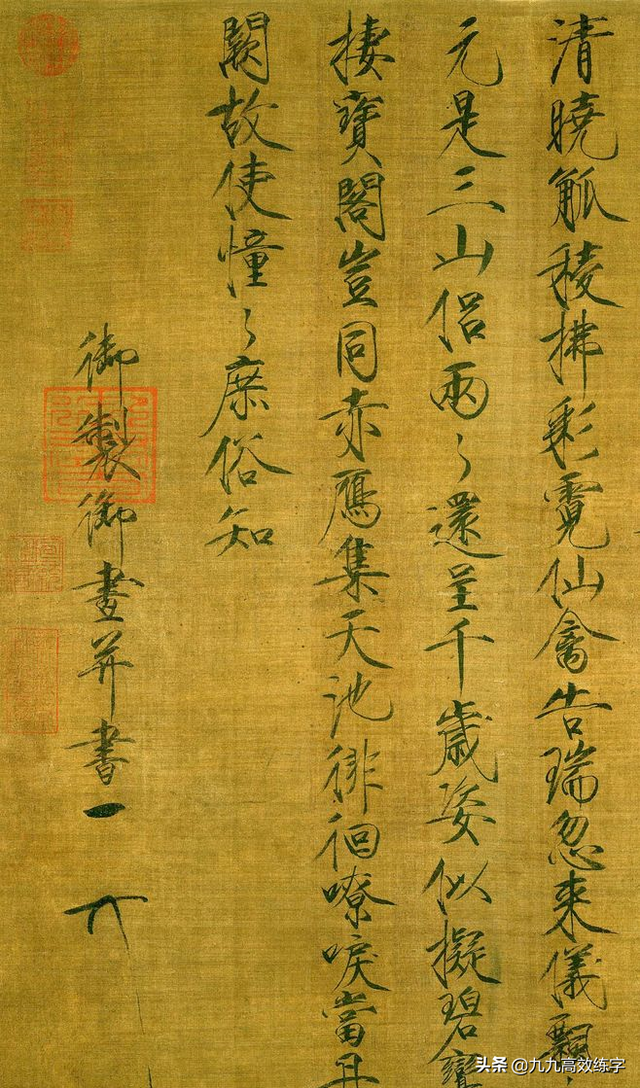 清曉觚稜拂彩霓仙禽告瑞忽来儀飄
元是三山侶兩〻還呈千歲姿似擬碧鸞
棲寶閣豈同赤鴈集天池徘徊嘹唳當丹
闕故使憧〻庶俗知
御製御畫并書
头条 @九九高效练字